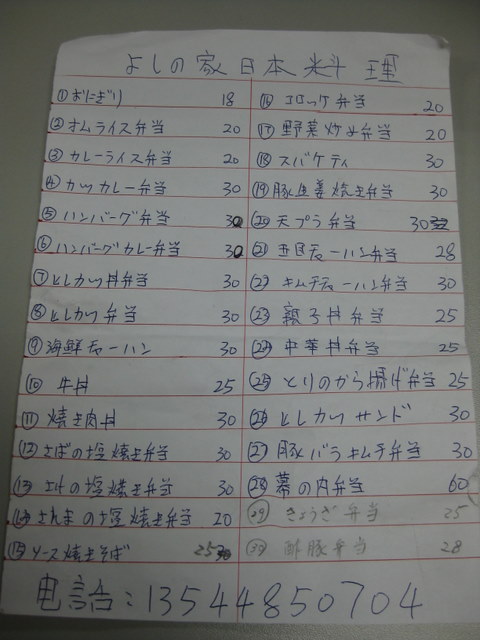 よしの家日本料理
①おにぎり 18
②オムライス弁当 20
③カレーライス弁当 20
④カツカレー弁当 30
⑤ハンバーグ弁当 30
⑥ハンバーグカレー弁当 30
⑦としカツ丼弁当 30
⑧としカツ弁当 30
⑨海鮮チャーハン 30
⑩牛丼 25
⑪焼き肉丼 30
⑫さばの塩焼き弁当 30
⑬さけの塩焼き弁当 30
⑭さんまの塩焼き弁当 20
⑮ソース焼きそば 25
⑯コロッケ弁当 20
⑰野菜炒め弁当 20
⑱スパケティ 30
⑲豚生姜焼き弁当 30
⑳天プラ弁当 30
㉑五目チャーハン弁当 28
㉒キムチチャーハン弁当 30
㉓親子丼弁当 25
㉔中華丼弁当 25
㉕とりのから揚げ弁当 25
㉖としカツサンド 30
㉗豚バラキムチ弁当 30
㉘幕の内弁当 60
㉙きょうざ弁当 25
㉚酢豚弁当 28
电話：13544850704